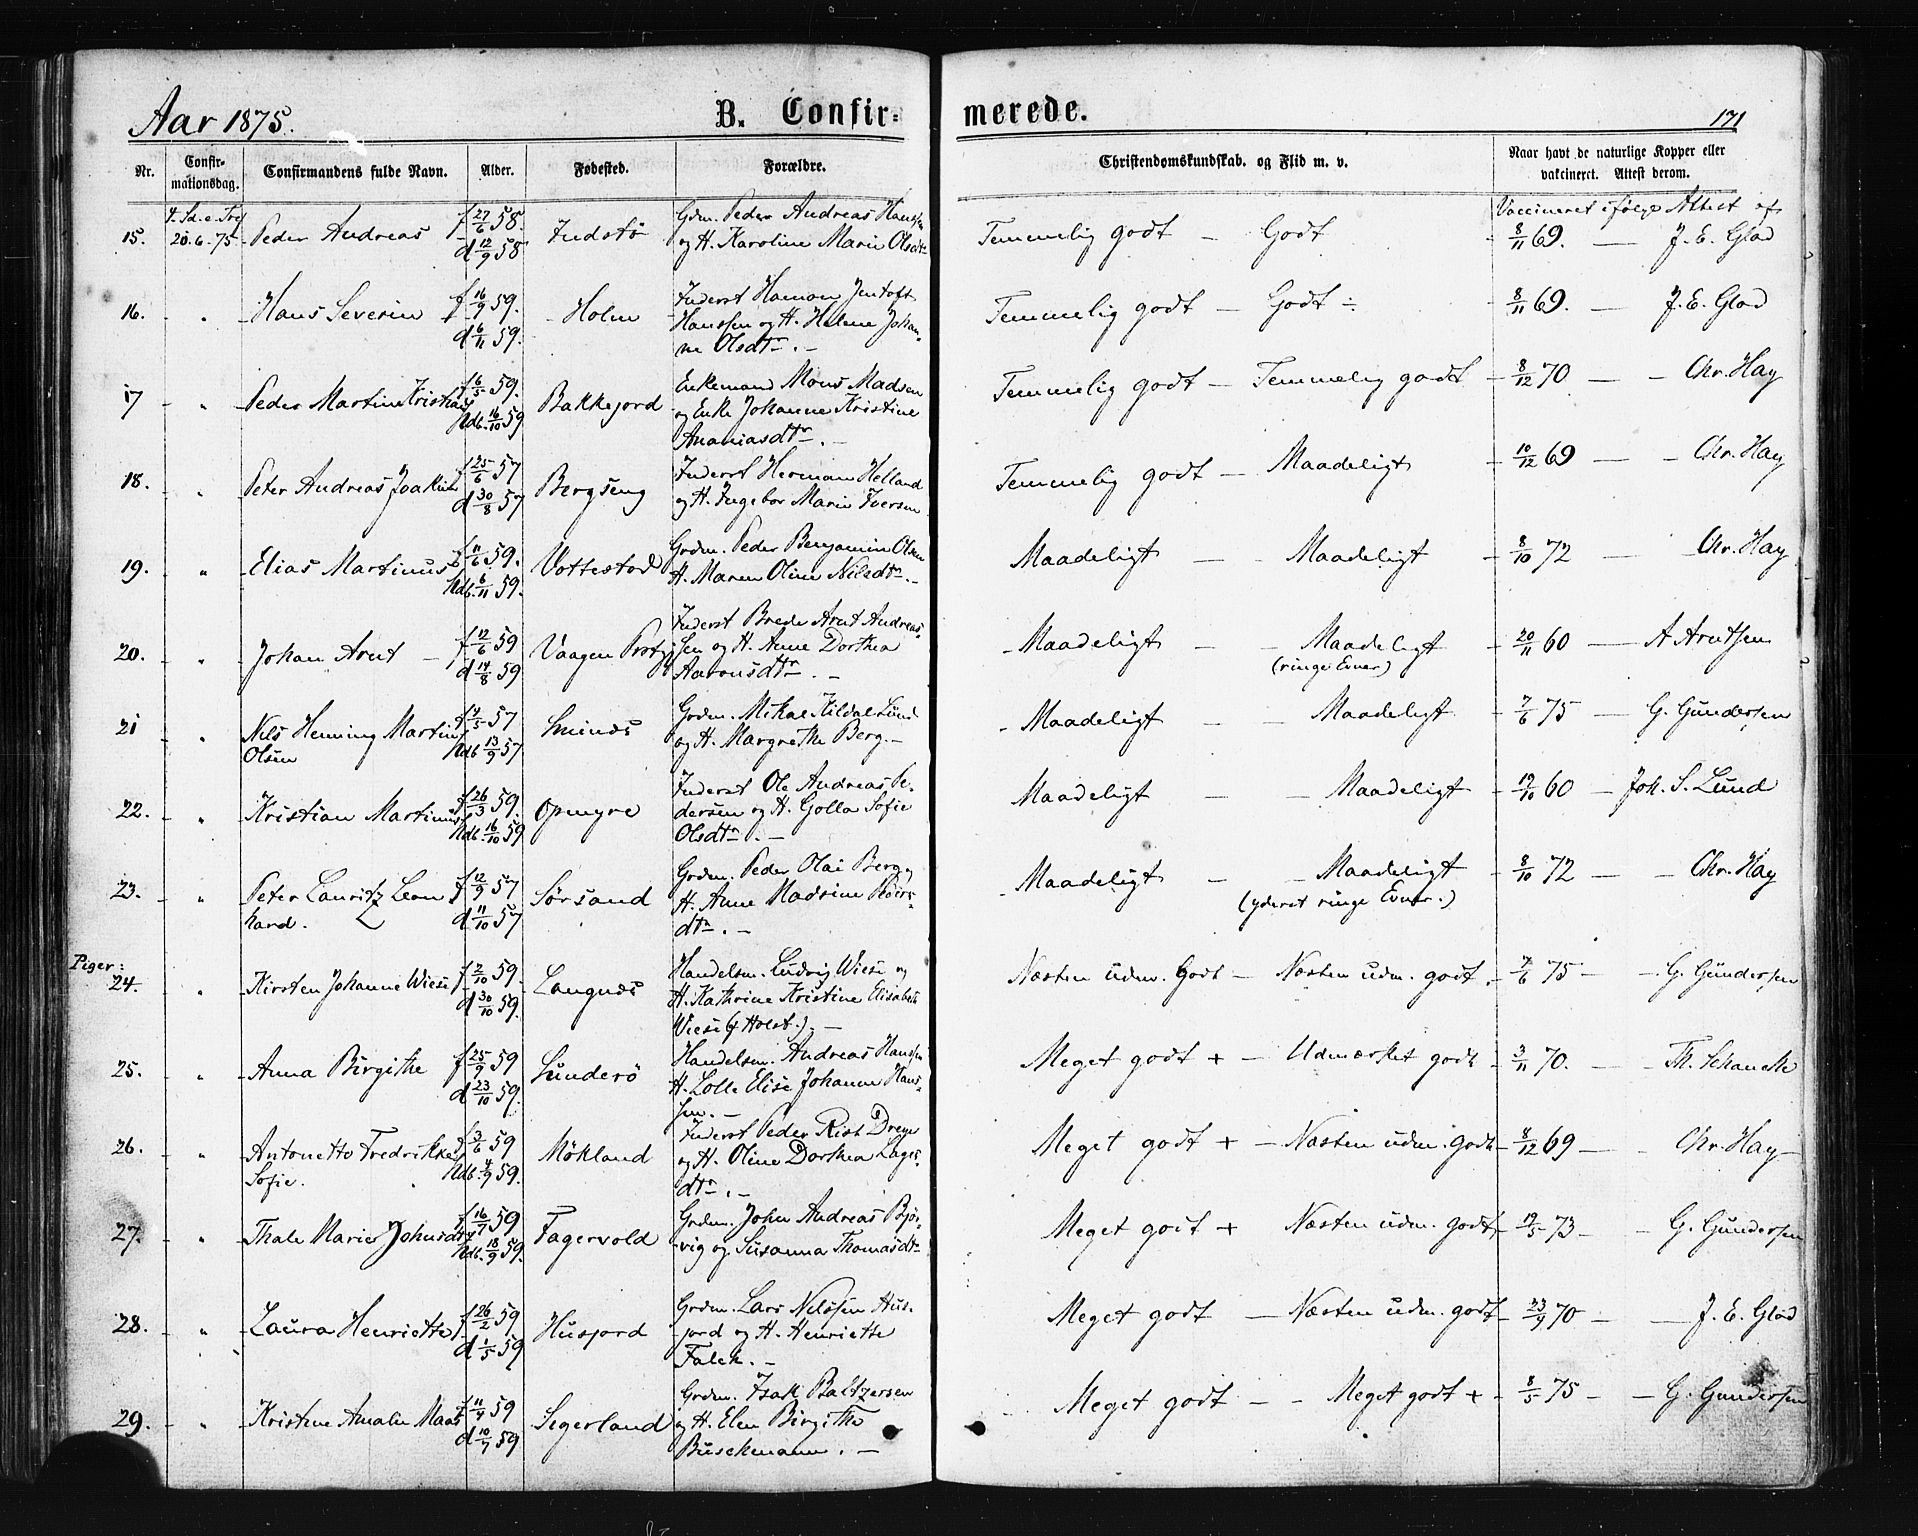 Aar 1875. B. Confir= merede. 171
Nr. Confir-mationsdag. Confirmandens fulde Navn. Alder. Fødested. Forældre. Christendomskundskab. og Flid m. v. Naar havt de naturlige Kopper eller vakcineret. Attest derom.
4. Sd. e. Tref f 27/6 58. Grdm. Peder Andreas Hanssen Vaccineret ifølge Attest af
15. 20.6.75 Peder Andreas d 12/9 58 Indstø og H. Karoline Marie Olsdtr Temmelig godt – Godt 8/11 69. – J. E. Glad
16. " Hans Severin f 16/9 59. Holm Inderst Haman Jentoft
d 6/11 59. Hanssen og H. Helene Johan-
ne Olsdtr. – Temmelig godt – Godt ÷ 8/11 69. J. E. Glad
17 " Peder Martin Kristian f 6/5 59. Bakkejord Enkemand Mons Madsen
Ndb. 16/10 59 og Enke Johanne Kristine
Ananiasdtr. – Temmelig godt – Temmelig godt – 8/12 70 – Chr. Hay
18. " Peter Andreas Joakim f 25/6 57 Bergseng Inderst Herman Helland
d 30/8 57 og H. Ingebor Marie Iversen Temmelig godt – Maadeligt – 10/12 69 – Chr. Hay
19. " Elias Martinus f 11/6 59. Vottestad Grdm. Peder Benjamin Olsen
Ndb. 6/11 59. H. Maren Oline Nilsdtr. – Maadeligt – Maadeligt – 8/10 72 – Chr. Hay
20. " Johan Arnt – f 12/6 59 Vaagen Prstgj Inderst Brede Arnt Andreas-
d 14/8 59 sen og H. Anne Dorthea
Aaronsdtr. – Maadeligt – Maadeligt (ringe Evner) – 20/11 60 – A Arntsen
21 " Nils Henning Martin f 4/5 57 Smines Grdm. Mikal Kildal Lund
Olsen Ndb 13/9 57 og H. Margrethe Berg. – Maadeligt – Maadeligt – 7/6 75 – G. Gundersen
22. " Kristian Martinus f 26/3 59. Opmyre Inderst Ole Andreas Pe-
Ndb. 16/10 59 dersen og H. Golla Sofie
Olsdtr. – Maadeligt – Maadeligt – 19/10 60 – Joh. S. Lund
23. " Peter Lauritz Leon- f 12/9 57 Sørsand Grdm. Peder Olai Berg og
hard. d 11/10 57 H. Anne Madsine
dtr. – Maadeligt – Maadeligt (yderst ringe Evner.) – 8/10 72 – Chr. Hay
Piger:
24. " Kirsten Johanne Wiese f 2/10 59. Langnes Handelsm. Ludvig Wiese og
d 30/10 59. H. Kathrine Kristine Elisabeth
Wiese (f Holst.). – Næsten udm. Godt – Næsten udm. godt. 7/6 75 – G. Gundersen
25. " Anna Birgithe f 25/9 59 Sunderö Handelsm. Andreas Hanssen
d 23/10 59. H. Lolle Elise Johanne Hans-
sen. – Meget godt + – Udmærket godt – 3/11 70. – Th. Schancke
26. " Antonette Fredrikke f 3/6 59 Mökland Inderst Peder Rist Dreyer
Sofie. Ndb. 4/9 59. og H. Oline Dorthea Lager-
dtr. – Meget godt + – Næsten udm. godt – 8/12 69 – Chr. Hay –
27. " Thale Marie Johnsdtr f 16/7 59 Fagervold Grdm. John Andreas Bjør-
Ndb. 18/9 59. vig og Susanna Thomasdtr Meget godt + Næsten udm. godt 19/5 73 – G. Gundersen
28. " Laura Henriette f 26/2 59 Husjord Grdm. Lars Nilssen Hus-
d 1/5 59 jord og H. Henriette
Falch. – Meget godt – Næsten udm. godt – 23/9 70 – J. E. Glad
29. " Kristine Amalie Maas f 11/4 59 Segerland Grdm. Isak Baltzersen
d 10/7 59 og H. Elen Birgithe
Buschmann. – Meget godt – Meget godt + – 8/5 75 – G. Gundersen